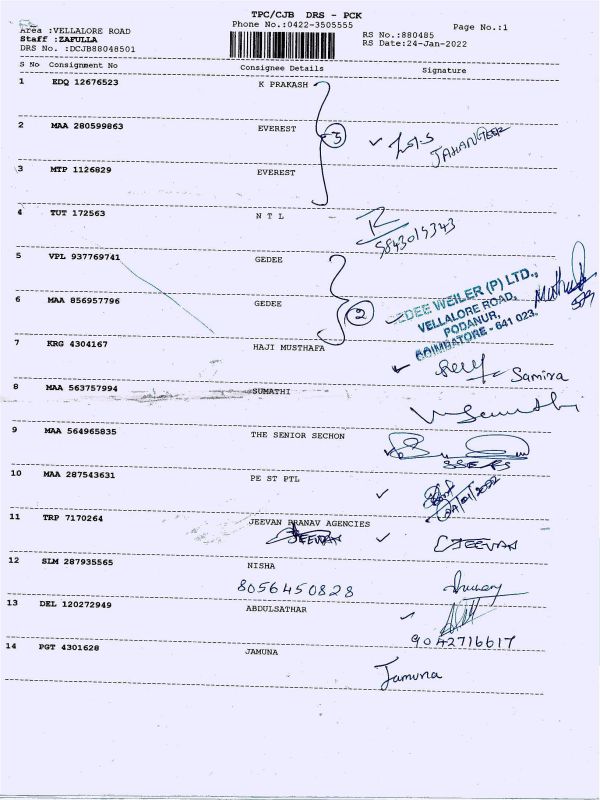 TPC/CJB DRS - PCK
Area :VELLALORE ROAD
Phone No.:0422-3505555
Page No.:1
Staff :ZAFULLA
RS No.:880485
DRS No. :DCJB88048501
RS Date:24-Jan-2022
S No Consignment No Consignee Details Signature
1 EDQ 12676523 K PRAKASH
2 MAA 280599863 EVEREST
3
JAHANGEER
3 MTP 1126829 EVEREST
4 TUT 172563 N T L
9843019343
5 VPL 937769741 GEDEE
GEDEE WEILER (P) LTD.,
VELLALORE ROAD,
PODANUR,
COIMBATORE - 641 023.
6 MAA 856957796 GEDEE
2
7 KRG 4304167 HAJI MUSTHAFA
Samira
8 MAA 563757994 SUMATHI
9 MAA 564965835 THE SENIOR SECHON
10 MAA 287543631 PE ST PTL
24/01/2022
11 TRP 7170264 JEEVAN PRANAV AGENCIES
JEEVAN JEEVAN
12 SLM 287935565 NISHA
8056450828
13 DEL 120272949 ABDULSATHAR
9042716617
14 PGT 4301628 JAMUNA
Jamuna